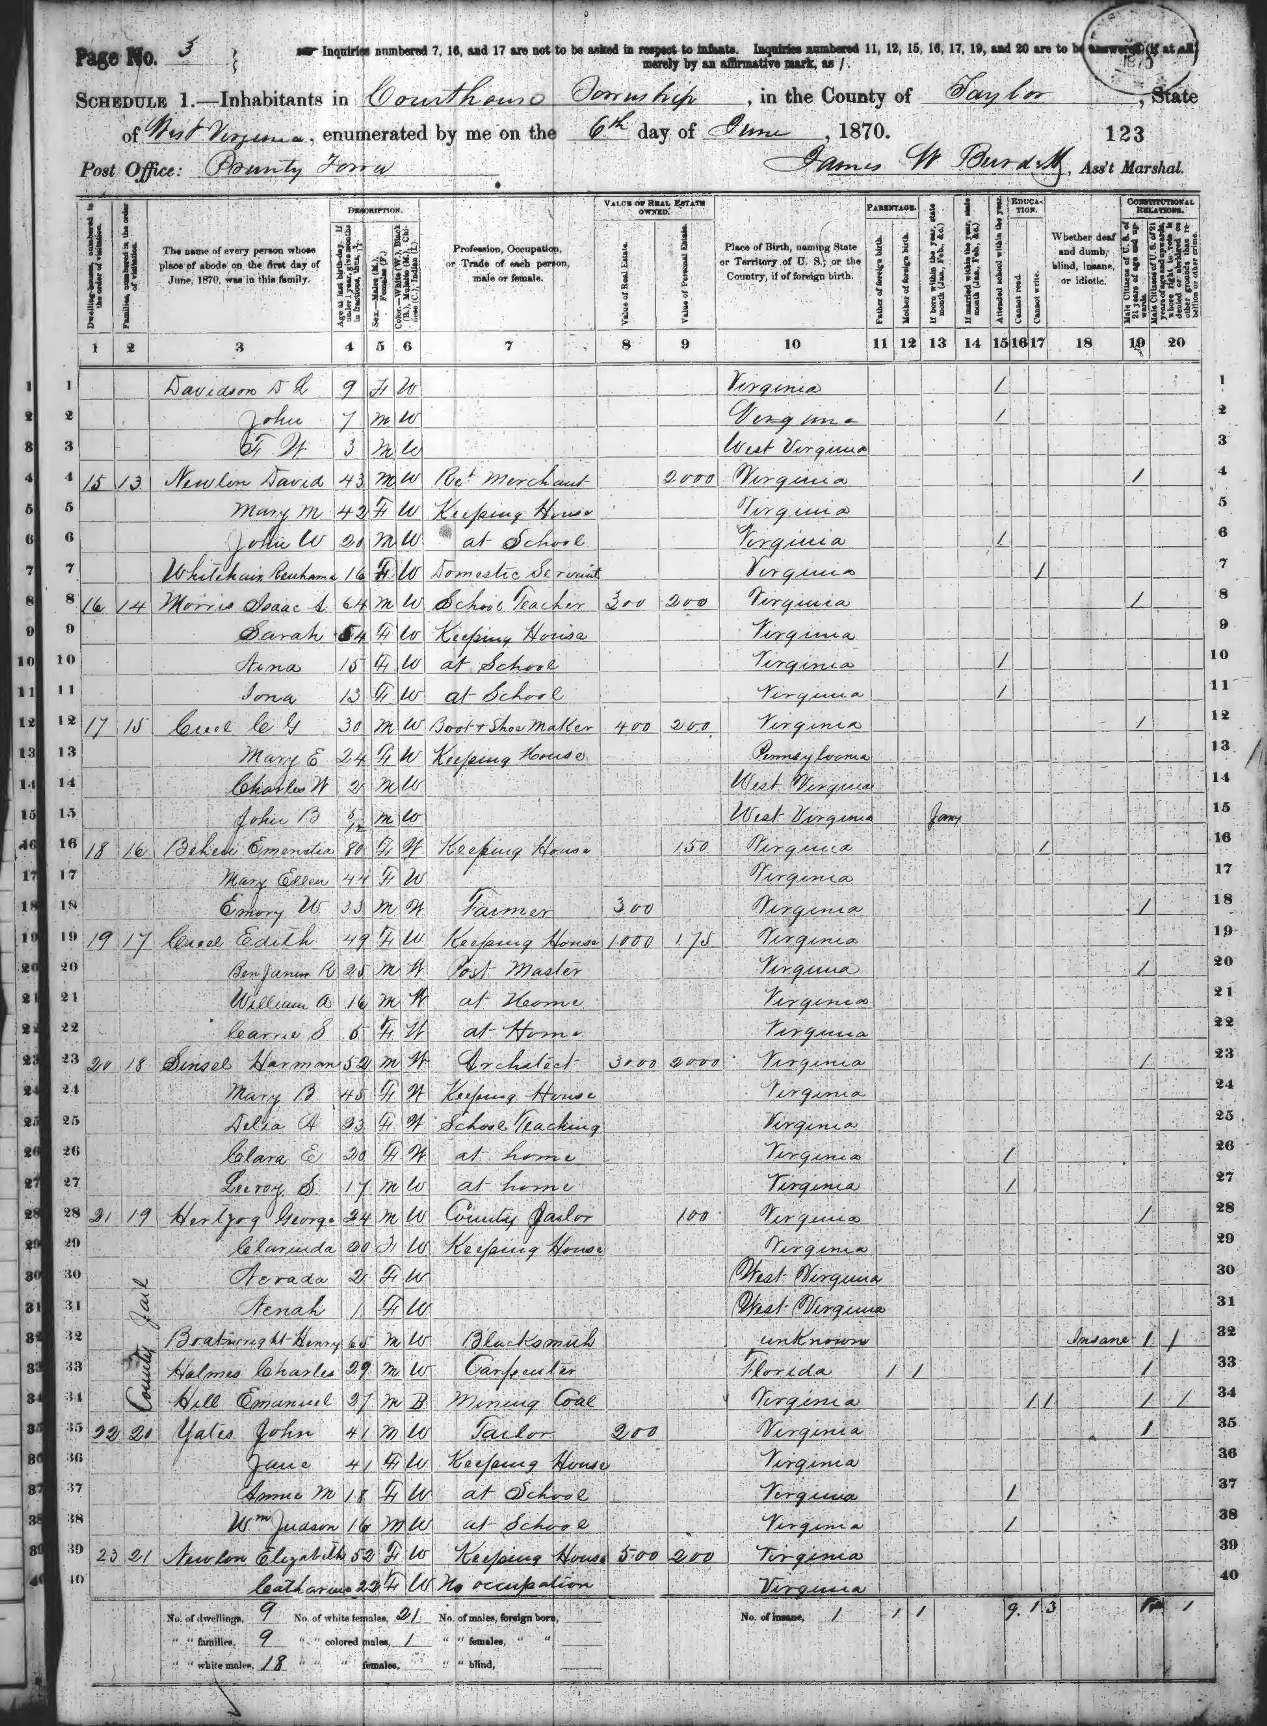 Page No. 3
Inquiries numbered 7, 16, and 17 are not to be asked in respect to infants. Inquiries numbered 11, 12, 15, 16, 17, 19, and 20 are to be answered (if at all)
merely by an affirmative mark, as /.
SCHEDULE 1.—Inhabitants in Courthouse Township, in the County of Taylor, State
of West Virginia, enumerated by me on the 6th day of June, 1870. 123
Post Office: Pruntytown James W Burdett, Ass't Marshal.
DESCRIPTION. VALUE OF REAL ESTATE OWNED. PARENTAGE. EDUCATION. CONSTITUTIONAL RELATIONS.
Dwelling-houses, numbered in the order of visitation.
Families, numbered in the order of visitation.
The name of every person whose place of abode on the first day of June, 1870, was in this family.
Age at last birth-day. If under 1 year, give months in fractions, thus, 3/12.
Sex.—Males (M.), Females (F.).
Color.—White (W.), Black (B.), Mulatto (M.), Chinese (C.), Indian (I.).
Profession, Occupation, or Trade of each person, male or female.
Value of Real Estate.
Value of Personal Estate.
Place of Birth, naming State or Territory of U. S.; or the Country, if of foreign birth.
Father of foreign birth.
Mother of foreign birth.
If born within the year, state month (Jan., Feb., &c.)
If married within the year, state month (Jan., Feb., &c.)
Attended school within the year.
Cannot read.
Cannot write.
Whether deaf and dumb, blind, insane, or idiotic.
Male Citizens of U. S. of 21 years of age and upwards.
Male Citizens of U. S. of 21 years of age and upwards, whose right to vote is denied or abridged on other grounds than rebellion or other crime.
1 2 3 4 5 6 7 8 9 10 11 12 13 14 15 16 17 18 19 20
1 1 Davidson D L 9 F W Virginia / 1
2 2 John 7 M W Virginia / 2
3 3 F W 3 M W West Virginia 3
4 4 15 13 Newlon David 43 M W Ret Merchant 2000 Virginia / 4
5 5 Mary M 42 F W Keeping House Virginia 5
6 6 John W 20 M W at School Virginia / 6
7 7 Whitehair 16 F W Domestic Servant Virginia / 7
8 8 16 14 Morris Isaac A 64 M W School Teacher 300 200 Virginia / 8
9 9 Sarah 54 F W Keeping House Virginia 9
10 10 Anna 15 F W at School Virginia / 10
11 11 Iona 13 F W at School Virginia / 11
12 12 17 15 Creel C G 30 M W Boot & Shoe Maker 400 200 Virginia / 12
13 13 Mary E 24 F W Keeping House Pennsylvania 13
14 14 Charles W 2 M W West Virginia 14
15 15 John B 5/12 M W West Virginia Jany 15
16 16 18 16 80 F W Keeping House 150 Virginia / 16
17 17 Mary Ellen 44 F W Virginia 17
18 18 Emory W 33 M W Farmer 300 Virginia / 18
19 19 19 17 Creel Edith 49 F W Keeping House 1000 175 Virginia 19
20 20 Benjamin R 25 M W Post Master Virginia / 20
21 21 William A 16 M W at Home Virginia 21
22 22 Carrie S 5 F W at Home Virginia 22
23 23 20 18 Sinsel Harman 52 M W Architect 3000 2000 Virginia / 23
24 24 Mary B 45 F W Keeping House Virginia 24
25 25 Delia A 23 F W School Teaching Virginia 25
26 26 Clara E 20 F W at home Virginia / 26
27 27 Leeroy S 17 M W at home Virginia / 27
28 28 21 19 Hertzog George 24 M W County Jailor 100 Virginia / 28
29 29 Clarinda 20 F W Keeping House Virginia 29
30 30 Nevada 2 F W West Virginia 30
31 31 Nenah 1 F W West Virginia 31
County Jail
32 32 Boatwright Henry 65 M W Blacksmith unknown Insane / / 32
33 33 Holmes Charles 29 M W Carpenter Florida / / / 33
34 34 Hill Emanuel 27 M B Mining Coal Virginia / / / / 34
35 35 22 20 Yates John 41 M W Tailor 200 Virginia / 35
36 36 Jane 41 F W Keeping House Virginia 36
37 37 Annie M 18 F W at School Virginia / 37
38 38 Wm Judson 16 M W at School Virginia / 38
39 39 23 21 Newlon Elizabeth 52 F W Keeping House 500 200 Virginia 39
40 40 Catharine 22 F W No occupation Virginia 40
No. of dwellings, 9 No. of white females, 21 No. of males, foreign born, No. of insane, 1 1 1 9 1 3 1
" " families, 9 " " colored males, 1 " " females, " "
" " white males, 18 " " " females, " " blind,